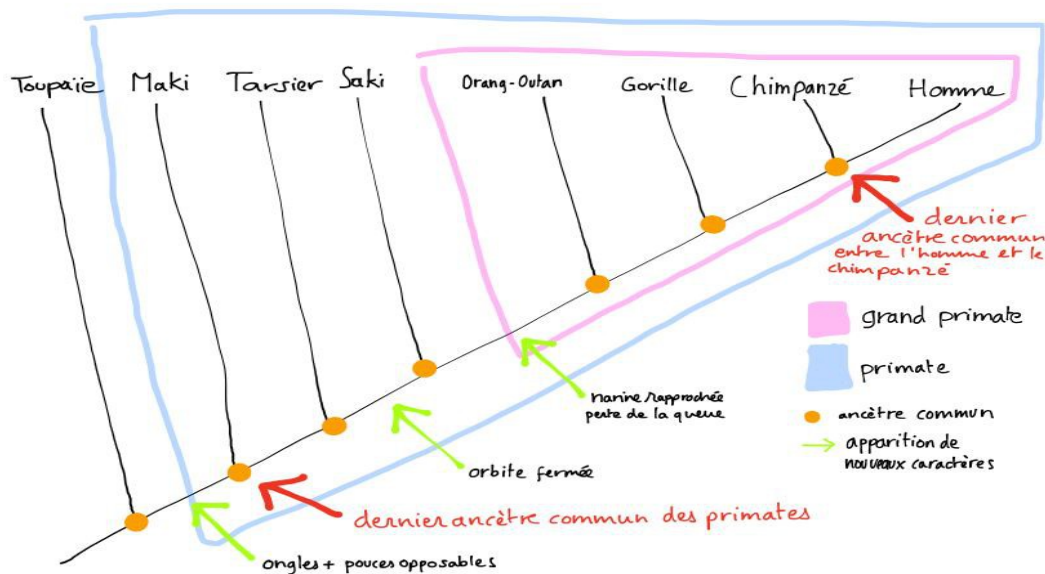 Toupaïe Maki Tarsier Saki Orang-Outan Gorille Chimpanzé Homme
dernier
ancêtre commun
entre l'homme et le
chimpanzé
grand primate
primate
ancêtre commun
apparition de
nouveaux caractères
narine rapprochée
perte de la queue
orbite fermée
dernier ancêtre commun des primates
ongles + pouces opposables